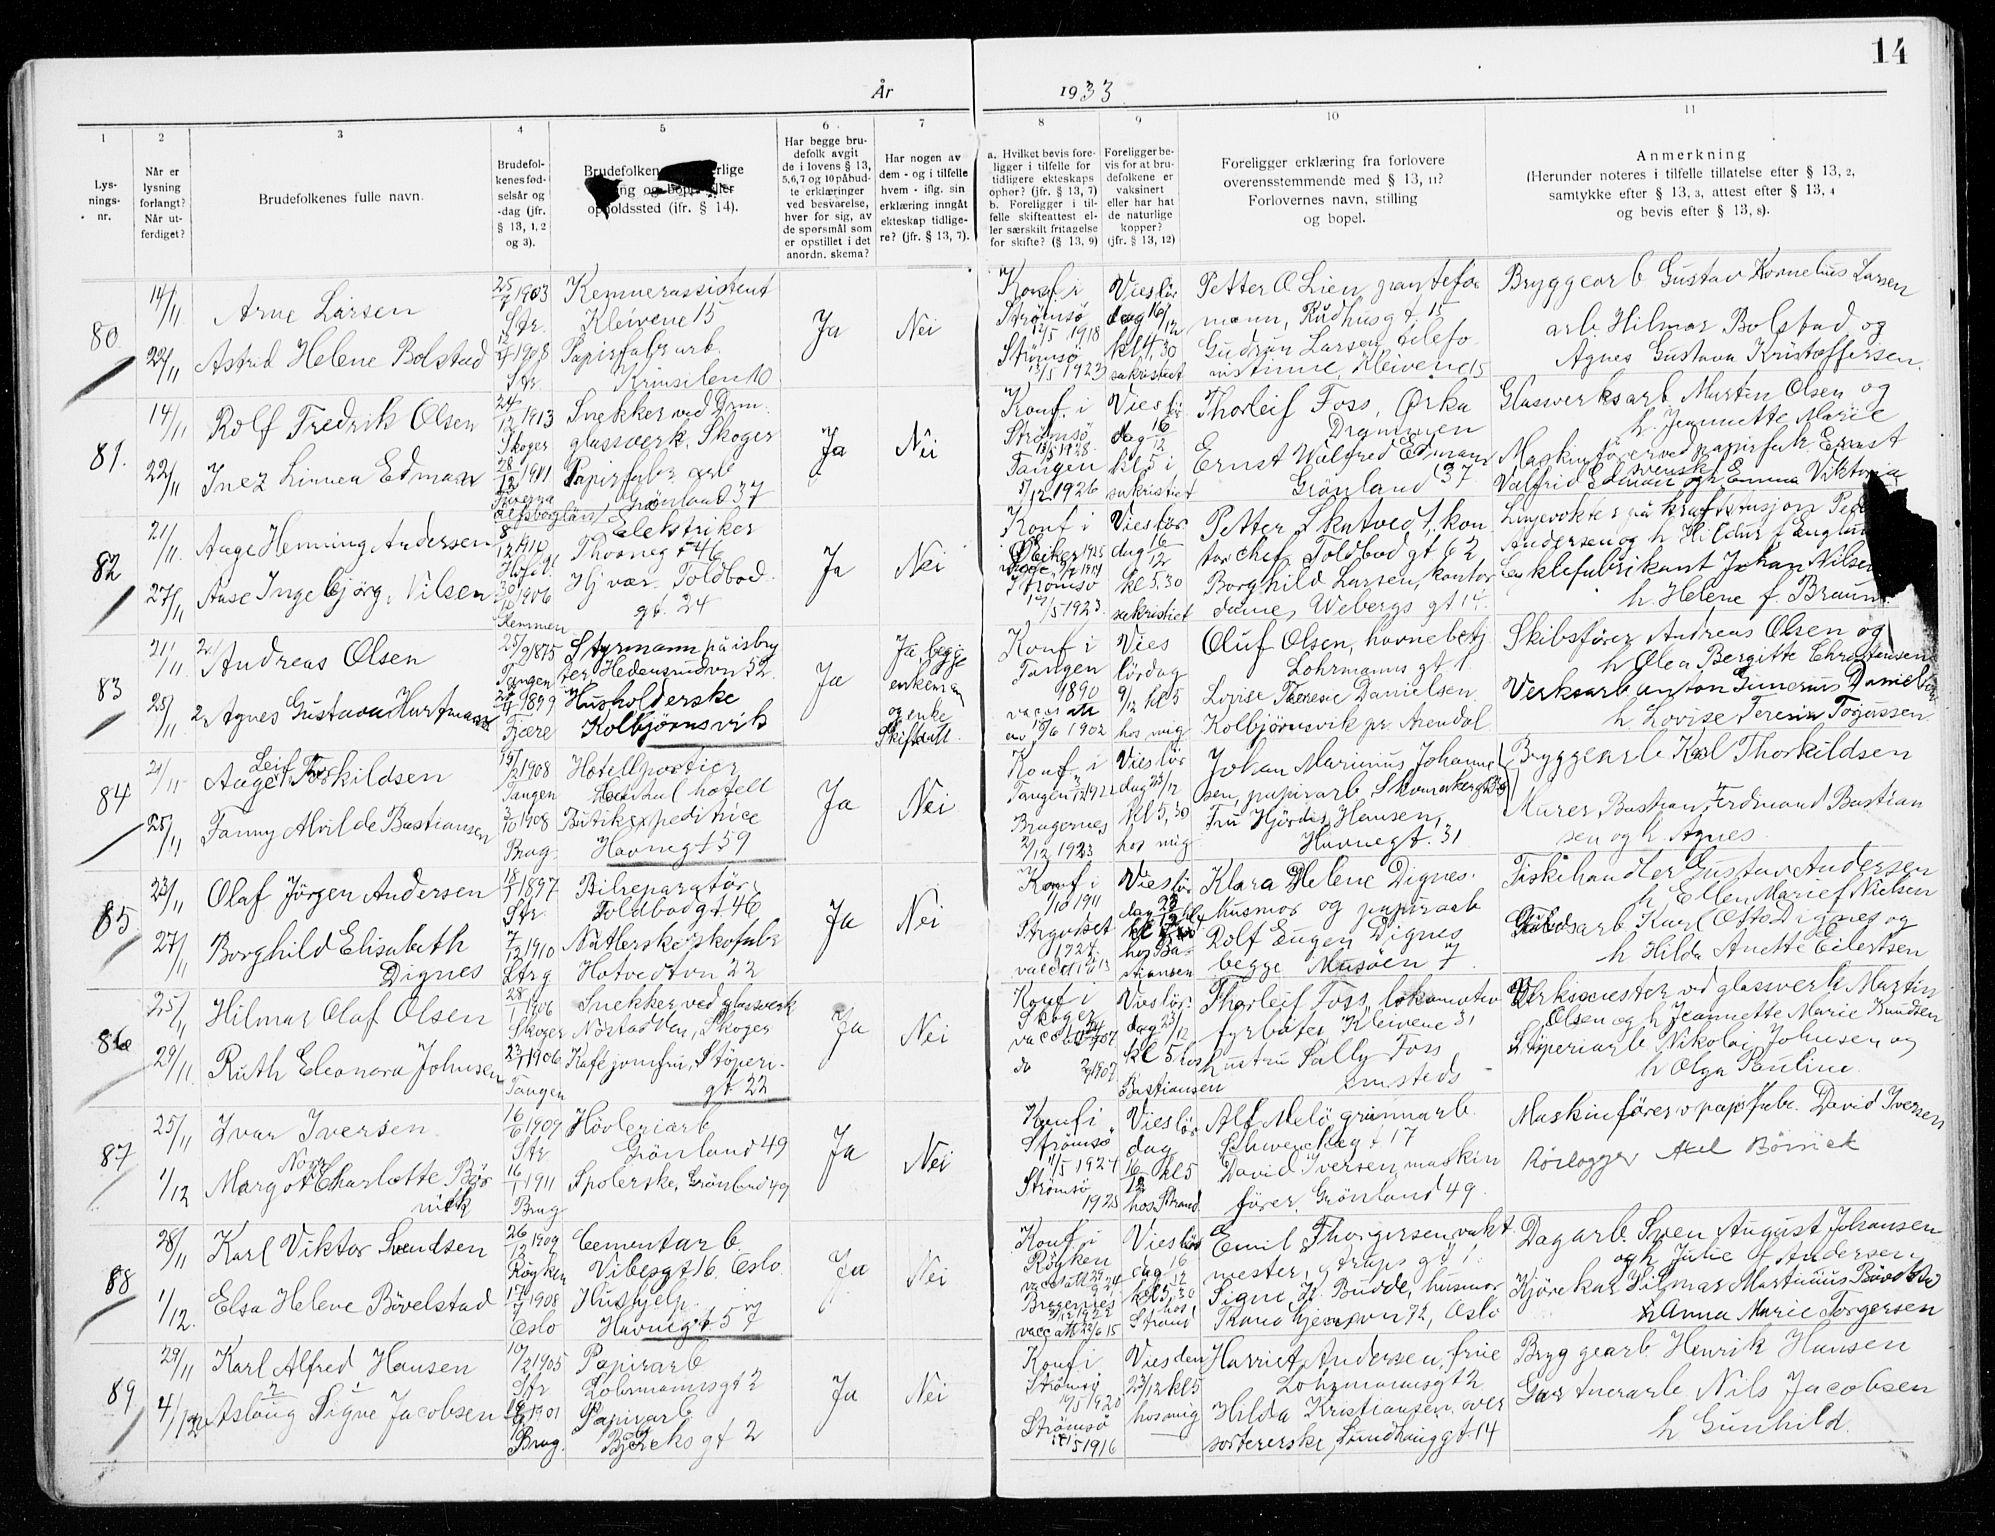 14
År 1933
1 2 3 4 5 6 7 8 9 10 11
Lysningsnr.
Når er lysning forlangt? Når utferdiget?
Brudefolkenes fulle navn.
Brudefolkenes fødselsår og -dag (jfr. § 13, 1, 2 og 3).
Brudefolkenes
oppholdssted (ifr. § 14).
Har begge brudefolk avgit de i lovens § 13, 5,6,7 og 10 påbudte erklæringer ved besvarelse, hver for sig, av de spørsmål som er opstillet i det anordn. skema?
Har nogen av dem - og i tilfelle hvem - iflg. sin erklæring inngått ekteskap tidligere? (jfr. § 13, 7).
a. Hvilket bevis foreligger i tilfelle for tidligere ekteskaps ophør? (jfr. § 13, 7) b. Foreligger i tilfelle skifteattest eller særskilt fritagelse for skifte? (§ 13, 9)
Foreligger bevis for at brudefolkene er vaksinert eller har hat de naturlige kopper? (jfr. § 13, 12)
Foreligger erklæring fra forlovere overensstemmende med § 13, 11? Forlovernes navn, stilling og bopel.
Anmerkning
(Herunder noteres i tilfelle tillatelse efter § 13, 2, samtykke efter § 13, 3, attest efter § 13, 4 og bevis efter § 13, 8).
80
14/11 Arne Larsen 25/7 1903 Str. Kemnerassistent Kleivene 15
22/11 Astrid Helene Bolstad 1908 Str Papirfabr arb.
Ja Nei
Konf i Strømsø 12/5 1918 Strømsø 13/5 1923
Vieslör dag 16/12 kl 4,30 sakristiet
Petter O Lien pantefoг mann, Rådhusgt. 15
Gudrun Larsen telefonistinne, Kleivene 15
Bryggearb Gustav Kornelius Larsen
arb Hilmar Bolstad og
Agnes Gustava Kristoffersen.
81.
14/11 Rolf Fredrik Olsen 24/12 1913 Skoger Snekker ved Drm. glassverk, Skoger
22/11 Inez Linnea Edman 28/12 1911 Papirfabr arb Grønland 37
Ja Nei
Konf. i Strømsø 1928. Tangen 1926
Vieslör dag 16/12 kl 5 i sakristiet
Thorleif Foss, Ørka Drammen
Ernst Walfred Edman Grønland 37
Glassverksarb Martin Olsen og h. Jeannette Marie
Maskinfører ved papirfabr. Ernst Valfrid Edman og h Emma Viktoria
svensk
82
21/11 Aage Henning Andersen 8/12 Elektriker Thornegt 46
27/11 Aase Ingebjørg Nilsen 1906 Hj vær. Toldbod gt. 24
Ja Nei
Konf i Strømsø 1923.
Vieslør dag 16/12 kl 5,30 sakristiet
Petter Skatvedt, kontorchef Toldbod gt 62
Borghild Larsen, kontor dame, Webergs gt 14.
Linjevokter på kraftstasjon
Andersen og h Hildur f Englun
fabrikant Johan Nilsen
h. Helene f. Braun
83
21/11 Andreas Olsen 25/9 1875 Tangen Styrmann på isbryter, Hedensrudvn 52.
25/11 Agnes Gustava Hartmann 1899 Fjære Husholderske Kolbjørnsvik
Ja
Ja begge enkemann og enke Skiftatt.
Konf i Tangen 1890 vacc att av 1902
Vies lördag 9/12 kl 5 hos mig
Oluf Olsen, havnebetj Lohrmanns gt 1.
Lovise Terese Danielsen Kolbjørnsvik pr. Arendal
Skibsfører Andreas Olsen og h Olea Bergitte Christensen
Verksarb anton Danielsen
h Lovise Teresie
84
21/11 Aage Leif Thorkildsen 15/2 1908 Tangen Hotellportier Central hotell
25/11 Fanny Alvilde Bastiansen 1908 Brag. Butikexpeditrice Havnegt 59
Ja Nei
Konf. i Tangen 1922 Bragernes 2/12 1923
Vieslör dag 23/12 kl 5,30 hos mig
Johan Marinius Johannesen, papirarb, Skomakergt 30
Fru Hjördis Hansen, Havnegt. 31
Bryggearb Karl Thorkildsen
Murer Bastian Ferdinand Bastiansen og h. Agnes.
85
23/11 Olaf Jörgen Andersen 18/ 1897 Str Bilreparatør Toldbodgt 46
27/11 Borghild Elisabeth Dignes 7/12 1910 Strg Nåtlerske skofabr Hotvedtvn 22
Ja Nei
Konf i 1911 Strg 1924
Vieslör dag 23 hos Bastiansen
Klara Helene Dignes. husmor og papirarb
Rolf Eugen Dignes begge Musøen 7
Fiskehandler Gustav Andersen h Ellen Marie f Nielsen
arb Karl Otto Dignes og h Hilda Anette Eilertsen
86
25/11 Hilmar Olaf Olsen 28/1 1906 Skoger Snekker ved glassverk Skoger
29/11 Ruth Eleonora Johnsen 23/ 1906 Tangen Kafejomfru, Støperigt 22
Ja Nei
Konf i Skoger
do 1907
Vieslör dag 23/12 kl 5 hos Bastiansen
Thorleif Foss, lokomotivfyrbøter, Kleivene 31
hustru Sally Foss smsteds
Verksmester ved glassverk Martin Olsen og h Jeannette Marie Knudsen
Støperiarb Nikolai Johnsen og h Olga Pauline.
87
25/11 Ivar Iversen. 16/6 1909 Str Høvleriarb Grønland 49
1/12 Margot Nora Charlotte Börnick 16/1 1911 Brag Spolerske, Grønland 49
Ja Nei
Konf i Strømsø 11/5 1924 Strømsø 1925
Vieslör dag 16/12 kl 5 hos Strand
Alf Melø grønnarb. Schwenckegt 17
David Iversen, maskinfører, Grønland 49.
Maskinfører v papirfabr. David Iversen
Rørlegger Axel Börnick
88
28/11 Karl Viktor Svendsen 26/12 1909 Røyken Cementarb. Vibesgt 16, Oslo.
1/12. Elsa Helene Bövelstad 17/7 1908 Oslo Hushjelp. Havnegt 57
Ja Nei
Konf. i Røyken Bragernes
Vieslör dag 16/12 kl 5,30 hos Strand
Emil Thorgersen vaktmester,
Signe H. Budde, husmor 72, Oslo
Dagarb. Sven August Johansen og h Julie f Andersen
Kjørekar Hilmar Martinius Bövelstad h Anna Marie Torgersen
89
29/11 Karl Alfred Hansen 10/2 1905 Str Papirarb Lohrmannsgt 2
4/12 Aslaug Signe Jacobsen 1901 Brag. Papirarb Bjørcksgt 2
Ja Nei
Konf i Strømsø 1920 Strømsø 1916
Vies den 23/12 kl 5 hos mig
Harriet Andersen, frue Lohrmannsgt 2
Hilda Kristiansen. oversortererske, Sundhauggt. 14
Bryggearb Henrik Hansen
Gartnerarb Nils Jacobsen h Gunhild.